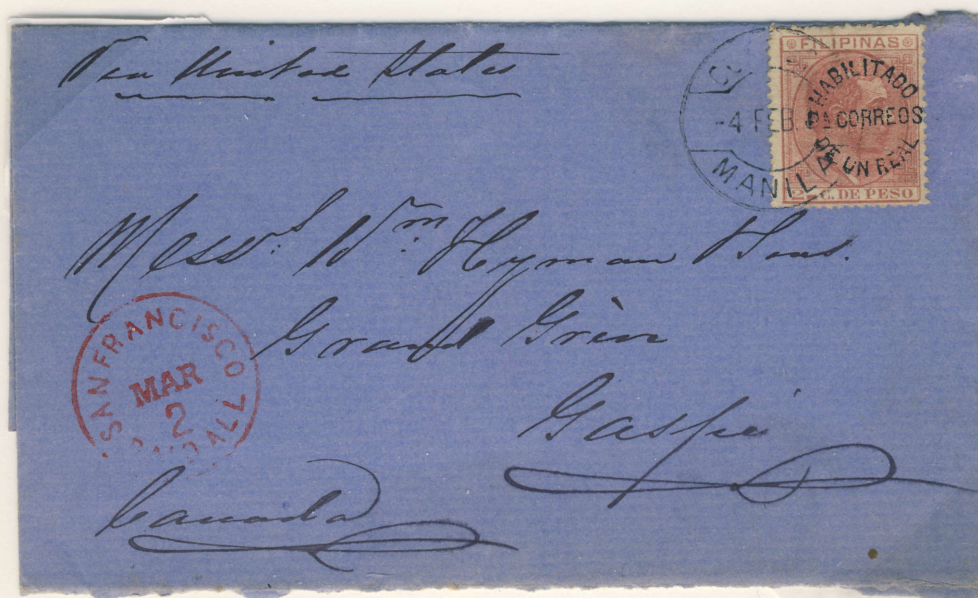 Via United States
FILIPINAS
HABILITADO
CORREOS
DE UN REAL
C. DE PESO
-4 FEB.
MANILA
Messrs Wm Hyman Sons.
Grand Grève
Gaspé
Canada
SAN FRANCISCO
MAR
2
PAID ALL